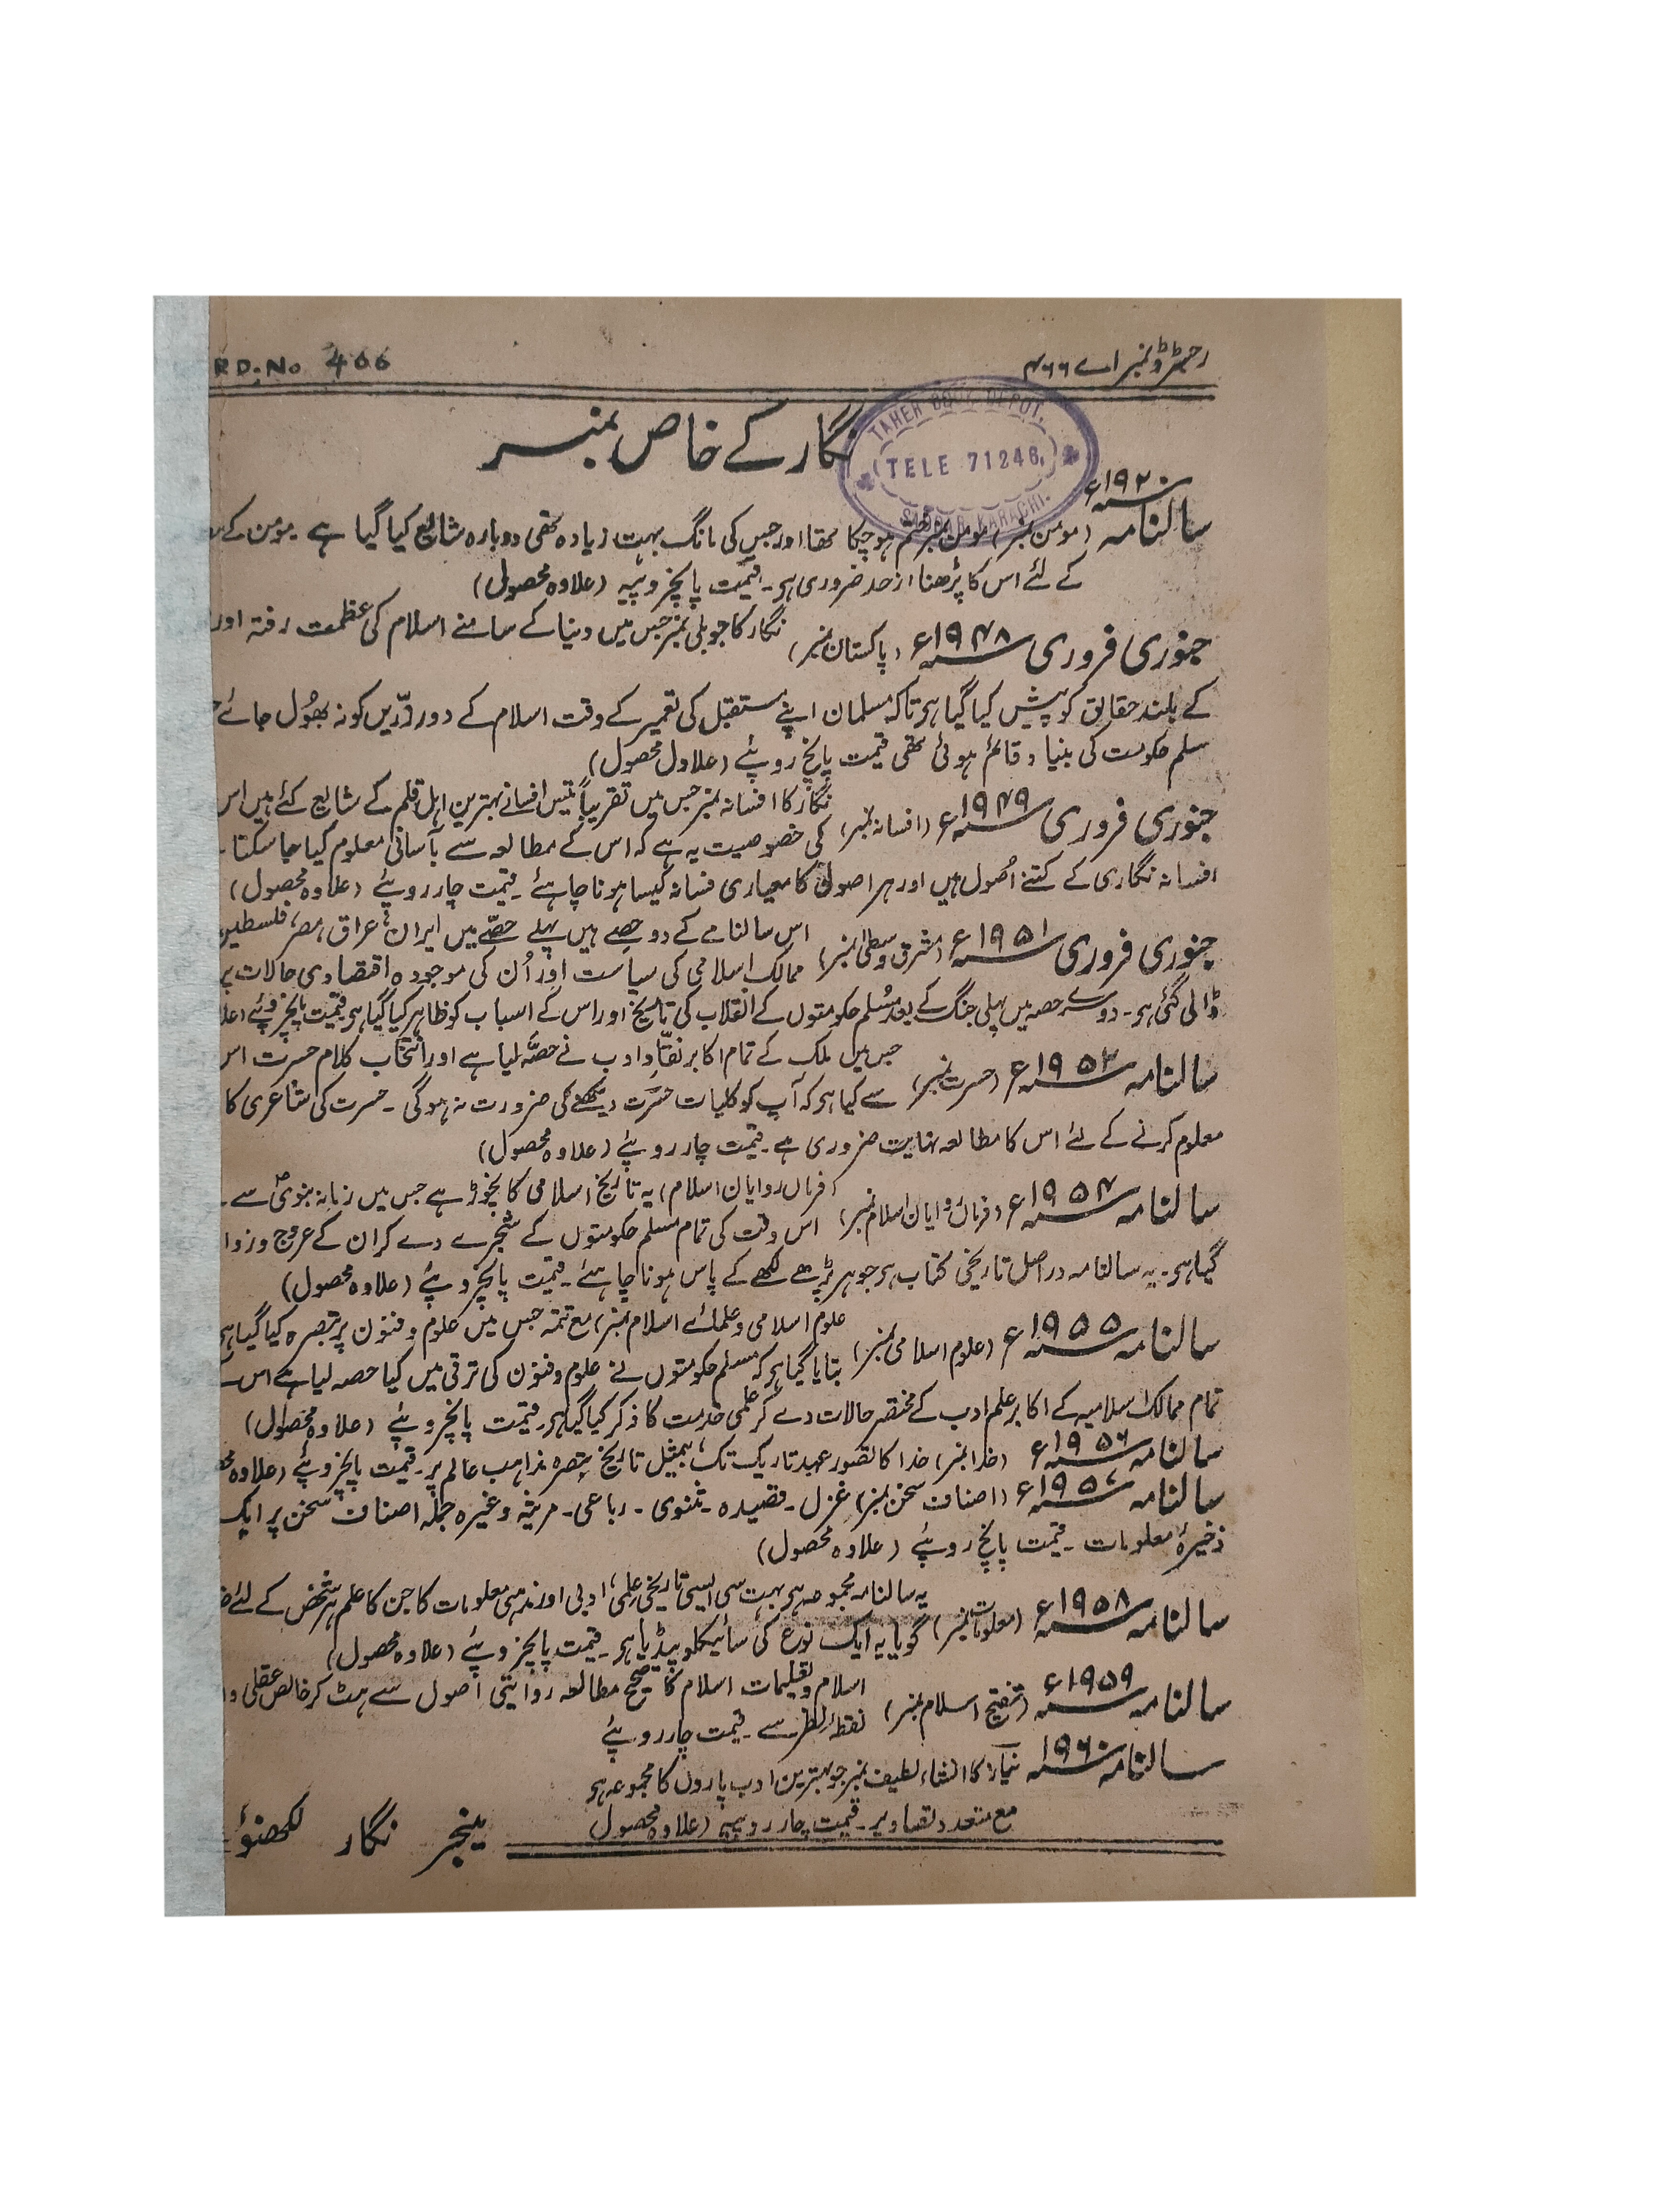 رجسٹرڈ نمبر اے ۴۶۶
RD. No 466
TAHER BOOK DEPOT.
TELE 71246.
SADDAR KARACHI.
نگار کے خاص نمبر
سالنامہ ۱۹۲۰ء (مومن نمبر) مومن نمبر ختم ہو چکا تھا اور جس کی مانگ بہت زیادہ تھی دوبارہ شایع کیا گیا ہے۔ مومن کے
کے لئے اس کا پڑھنا از حد ضروری ہے۔ قیمت پانچروپیہ (علاوہ محصول)
جنوری فروری ۱۹۴۸ء (پاکستان نمبر) نگار کا جوبلی نمبر جس میں دنیا کے سامنے اسلام کی عظمت رفتہ اور
کے بلند حقائق کو پیش کیا گیا ہے تاکہ مسلمان اپنے مستقبل کی تعمیر کے وقت اسلام کے دور زرّیں کو نہ بھُول جائے
مسلم حکومت کی بنیاد قائم ہوئی تھی قیمت پانچ روپئے (علاول محصول)
جنوری فروری ۱۹۴۹ء (افسانہ نمبر) نگار کا افسانہ نمبر جس میں تقریباً تیس افسانے بہترین اہل قلم کے شایع کئے ہیں اس
کی خصوصیت یہ ہے کہ اس کے مطالعہ سے بآسانی معلوم کیا جا سکتا
افسانہ نگاری کے کتنے اُصول ہیں اور ہر اصول کا معیاری فسانہ کیسا ہونا چاہئے۔ قیمت چار روپئے (علاوہ محصول)
جنوری فروری ۱۹۵۱ء (مشرق وسطیٰ نمبر) اس سالنامے کے دو حصے ہیں پہلے حصّے میں ایران، عراق، مصر، فلسطین
ممالک اسلامی کی سیاست اور اُن کی موجودہ اقتصادی حالات پر
ڈالی گئی ہے۔ دوسرے حصہ میں پہلی جنگ کے بعد مُسلم حکومتوں کے انقلاب کی تاریخ اور اس کے اسباب کو ظاہر کیا گیا ہے قیمت پانچروپئے
سالنامہ ۱۹۵۲ء (حسرت نمبر) جس میں ملک کے تمام اکابر نقّاد ادب نے حصّہ لیا ہے اور انتخاب کلام حسرت اس
سے کیا ہے کہ آپ کو کلیات حسرت دیکھنے کی ضرورت نہ ہوگی۔ حسرت کی شاعری کا
معلوم کرنے کے لئے اس کا مطالعہ نہایت ضروری ہے۔ قیمت چار روپئے (علاوہ محصول)
سالنامہ ۱۹۵۴ء (فرمانروایان اسلام نمبر) (فرماں روایان اسلام) یہ تاریخ اسلامی کا نچوڑ ہے جس میں زمانہ نبویؐ سے
اس وقت کی تمام مسلم حکومتوں کے شجرے دے کر ان کے عروج و زوا
گیا ہے۔ یہ سالنامہ دراصل تاریخی کتاب ہے جو ہر پڑھے لکھے کے پاس ہونا چاہئے۔ قیمت پانچروپئے (علاوہ محصول)
سالنامہ ۱۹۵۵ء (علوم اسلامی نمبر) علوم اسلامی و علمائے اسلام نمبر) مع تتمہ جس میں علوم و فنون پر تبصرہ کیا گیا ہے
بتایا گیا ہے کہ مسلم حکومتوں نے علوم و فنون کی ترقی میں کیا حصہ لیا ہے اس
تمام ممالک اسلامیہ کے اکابر علم ادب کے مختصر حالات دے کر علمی خدمت کا ذکر کیا گیا ہے۔ قیمت پانچروپئے (علاوہ محصول)
سالنامہ ۱۹۵۶ء (خدا نمبر) خدا کا تصور عہد تاریک تک، بمثیل تاریخ تبصرہ مذاہب عالم پر۔ قیمت پانچروپئے (علاوہ
سالنامہ ۱۹۵۷ء (اصناف سخن نمبر) غزل۔ قصیدہ۔ مثنوی۔ رباعی۔ مرثیہ وغیرہ جملہ اصناف سخن پر ایک
ذخیرۂ معلومات۔ قیمت پانچ روپئے (علاوہ محصول)
سالنامہ ۱۹۵۸ء (معلومات نمبر) یہ سالنامہ مجموعہ ہے بہت سی ایسی تاریخی، علمی، ادبی اور مذہبی معلومات کا جن کا علم ہر شخص کے لئے
گویا یہ ایک نوع کی سائیکلوپیڈیا ہے۔ قیمت پانچروپئے (علاوہ محصول)
سالنامہ ۱۹۵۹ء (تنقیح اسلام نمبر) اسلام و تعلیمات اسلام کا صحیح مطالعہ روایتی اصول سے ہٹ کر خالص عقلی و
نقطۂ نظر سے۔ قیمت چار روپئے
سالنامہ ۱۹۶۰ نیاز کا انشاء لطیف نمبر جو بہترین ادب پاروں کا مجموعہ ہے
مع متعدد تصاویر۔ قیمت چار روپیہ (علاوہ محصول)
مینجر نگار لکھنؤ